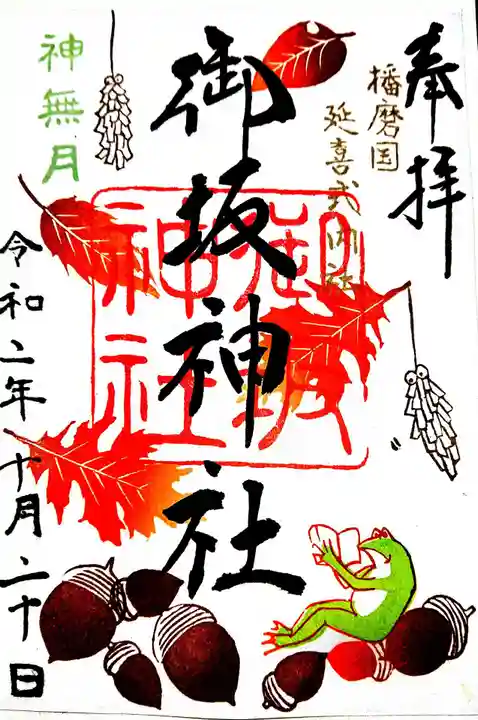 奉拝
播磨国
延喜式内社
御坂神社
御坂
神社
神無月
令和二年十月二十日